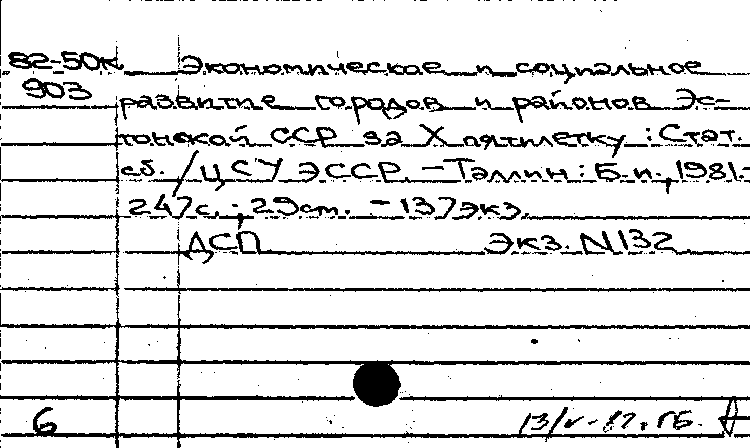 82-50К Экономическое и социальное
903 развитие городов и районов Эс-
тонской ССР за X пятилетку : Стат.
сб. / ЦСУ ЭССР. - Таллин : Б.и., 1981.-
247с. ; 29см. - 137экз.
ДСП Экз. N132
6 13/V-82. ГБ.